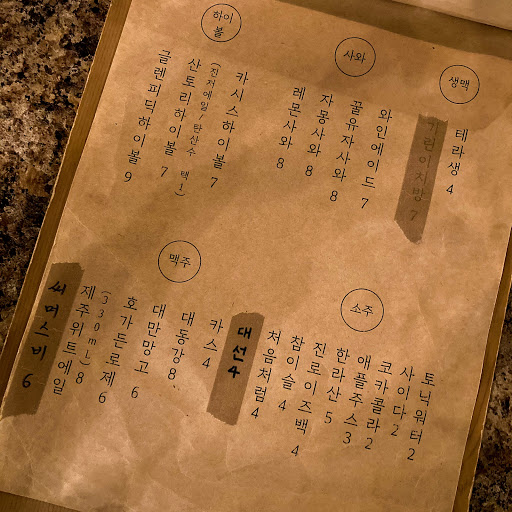 생맥
테라생 4
기린이치방 7
사와
와인에이드 7
꿀유자사와 8
자몽사와 8
레몬사와 8
하이
볼
카시스하이볼 7
(진저에일/탄산수 택1)
산토리하이볼 7
글렌피딕하이볼 9
소주
토닉워터 2
사이다 2
코카콜라 2
애플주스 3
한라산 5
진로이즈백 4
참이슬 4
처음처럼 4
대선 4
맥주
카스 4
대동강 8
대만망고 6
호가든로제 6
(330ml)
제주위트에일 8
써머스비 6